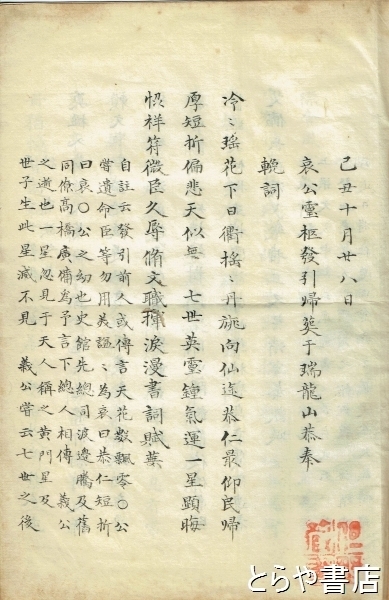 己丑十月廿八日
哀公靈柩發引歸葬于瑞龍山恭奉
輓詞
冷〻瑤花下日衢搖〻丹旐向仙迯恭仁最仰民歸
厚短折偏悲天似無　七世英靈鍾氣運一星顕晦
恨祥符微臣久辱脩文職揮淚漫書詞賦葉
自註云發引前人或傳言天花數飄零〇公
嘗遺命臣等勿用美謳〻為哀曰恭仁短折
曰哀〇公之幼也史館先總司渡邉騰及舊
同僚高橋廣備為予言下總人相傳　義公
之逝也一星忽見于天人稱之黄門星及
世子生此星滅不見　義公嘗云七世之後
とらや書店